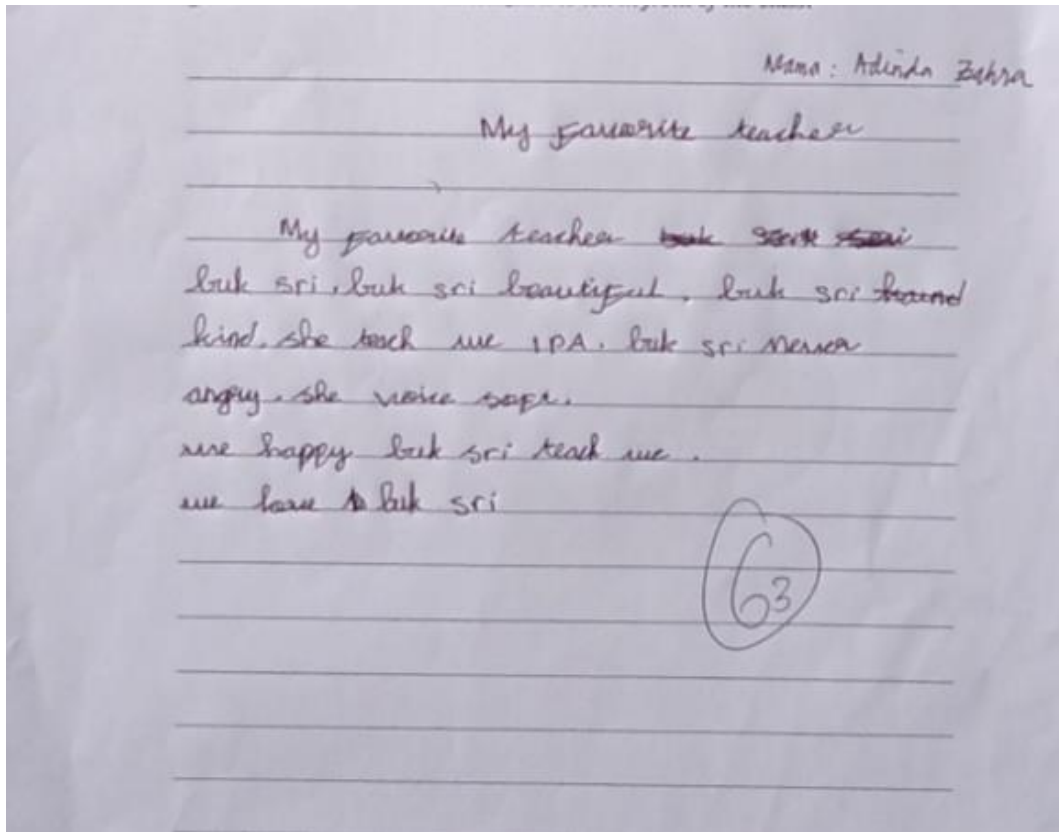 Nama : Adinda Zahra
My favorite teacher
My favorite teacher
buk sri, buk sri beautiful, buk sri
kind. she teach we IPA. buk sri never
angry. she voice soft.
we happy buk sri teach we.
we love buk sri
63